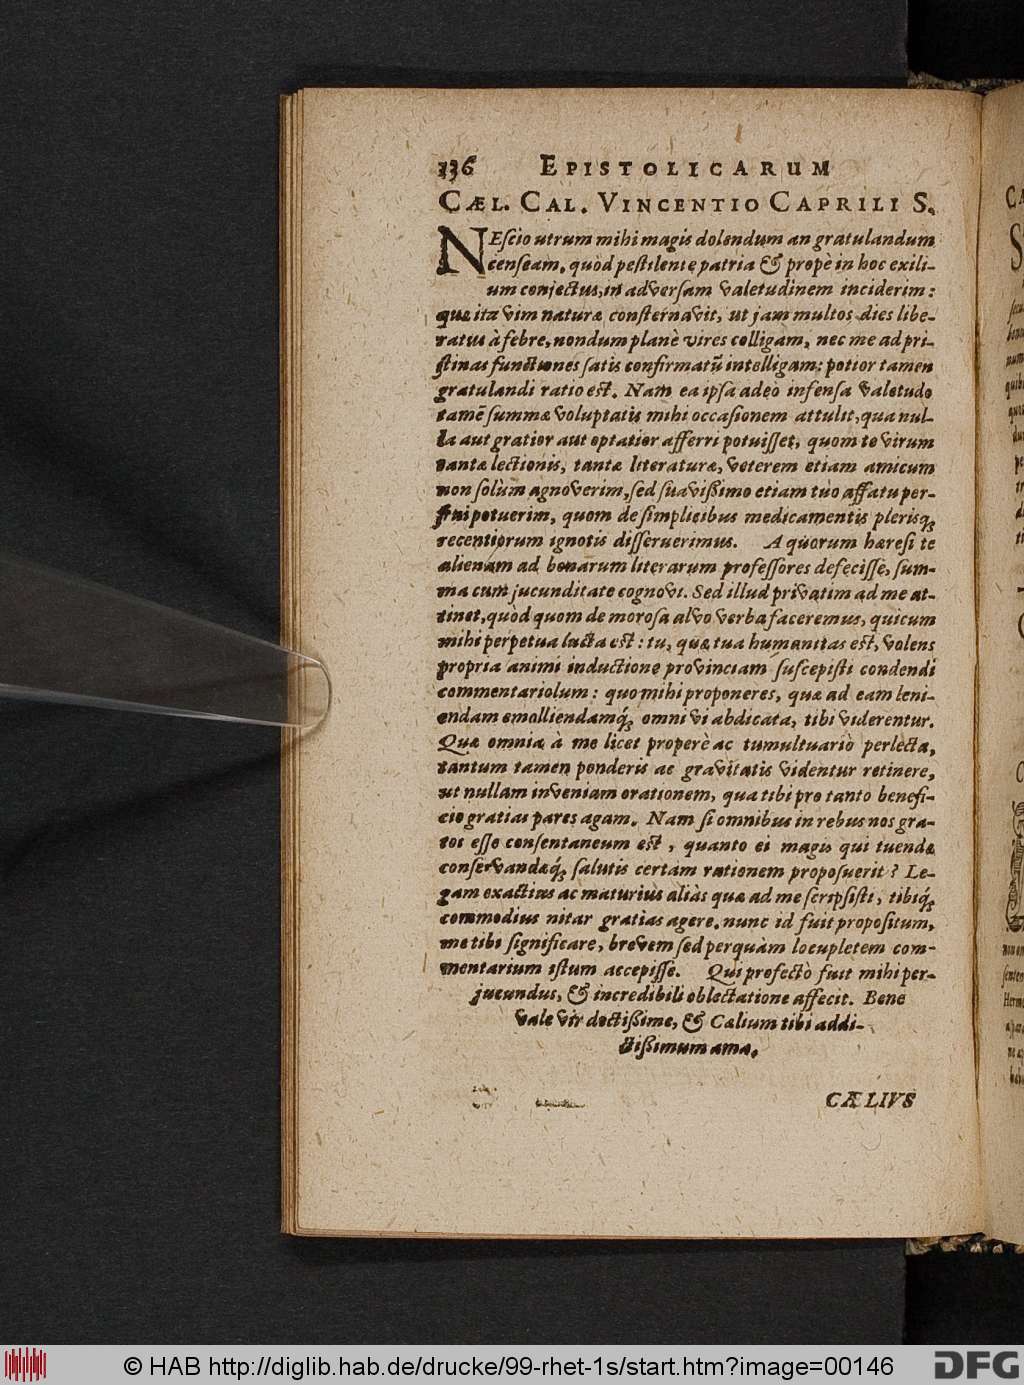 136 EPISTOLICARUM
CÆL. CAL. VINCENTIO CAPRILI S.
NEscio utrum mihi magis dolendum an gratulandum
censeam, quòd pestilente patria & propè in hoc exili-
um conjectus, in adversam valetudinem inciderim:
quæ ita vim naturæ consternavit, ut jam multos dies libe-
ratus à febre, nondum planè vires colligam, nec me ad pri-
stinas functiones satis confirmatũ intelligam: potior tamen
gratulandi ratio est. Nam ea ipsa adeò infensa valetudo
tamẽ summæ voluptatis mihi occasionem attulit, qua nul-
la aut gratior aut optatior afferri potuisset, quom te virum
tantæ lectionis, tantæ literaturæ, veterem etiam amicum
non solùm agnoverim, sed suavißimo etiam tuo affatu per-
frui potuerim, quom de simplicibus medicamentis plerisq́;
recentiorum ignotis disseruerimus. A quorum hæresi te
alienum ad bonarum literarum professores defecisse, sum-
ma cum jucunditate cognovi. Sed illud privatim ad me at-
tinet, quòd quom de morosa alvo verba faceremus, quicum
mihi perpetua lucta est: tu, quæ tua humanitas est, volens
propria animi inductione provinciam suscepisti condendi
commentariolum: quo mihi proponeres, quæ ad eam leni-
endam emolliendamq́; omni vi abdicata, tibi viderentur.
Quæ omnia à me licet properè ac tumultuariò perlecta,
tantum tamen ponderis ac gravitatis videntur retinere,
ut nullam inveniam orationem, qua tibi pro tanto benefi-
cio gratias pares agam. Nam si omnibus in rebus nos gra-
tos esse consentaneum est, quanto ei magis qui tuendæ
conservandæq́; salutis certam rationem proposuerit? Le-
gam exactius ac maturiùs aliàs quæ ad me scripsisti, tibiq́;
commodius nitar gratias agere. nunc id fuit propositum,
me tibi significare, brevem sed perquàm locupletem com-
mentarium istum accepisse. Qui profectò fuit mihi per-
jucundus, & incredibili oblectatione affecit. Bene
vale vir doctißime, & Cælium tibi addi-
ctißimum ama.
CÆLIVS
© HAB http://diglib.hab.de/drucke/99-rhet-1s/start.htm?image=00146 DFG